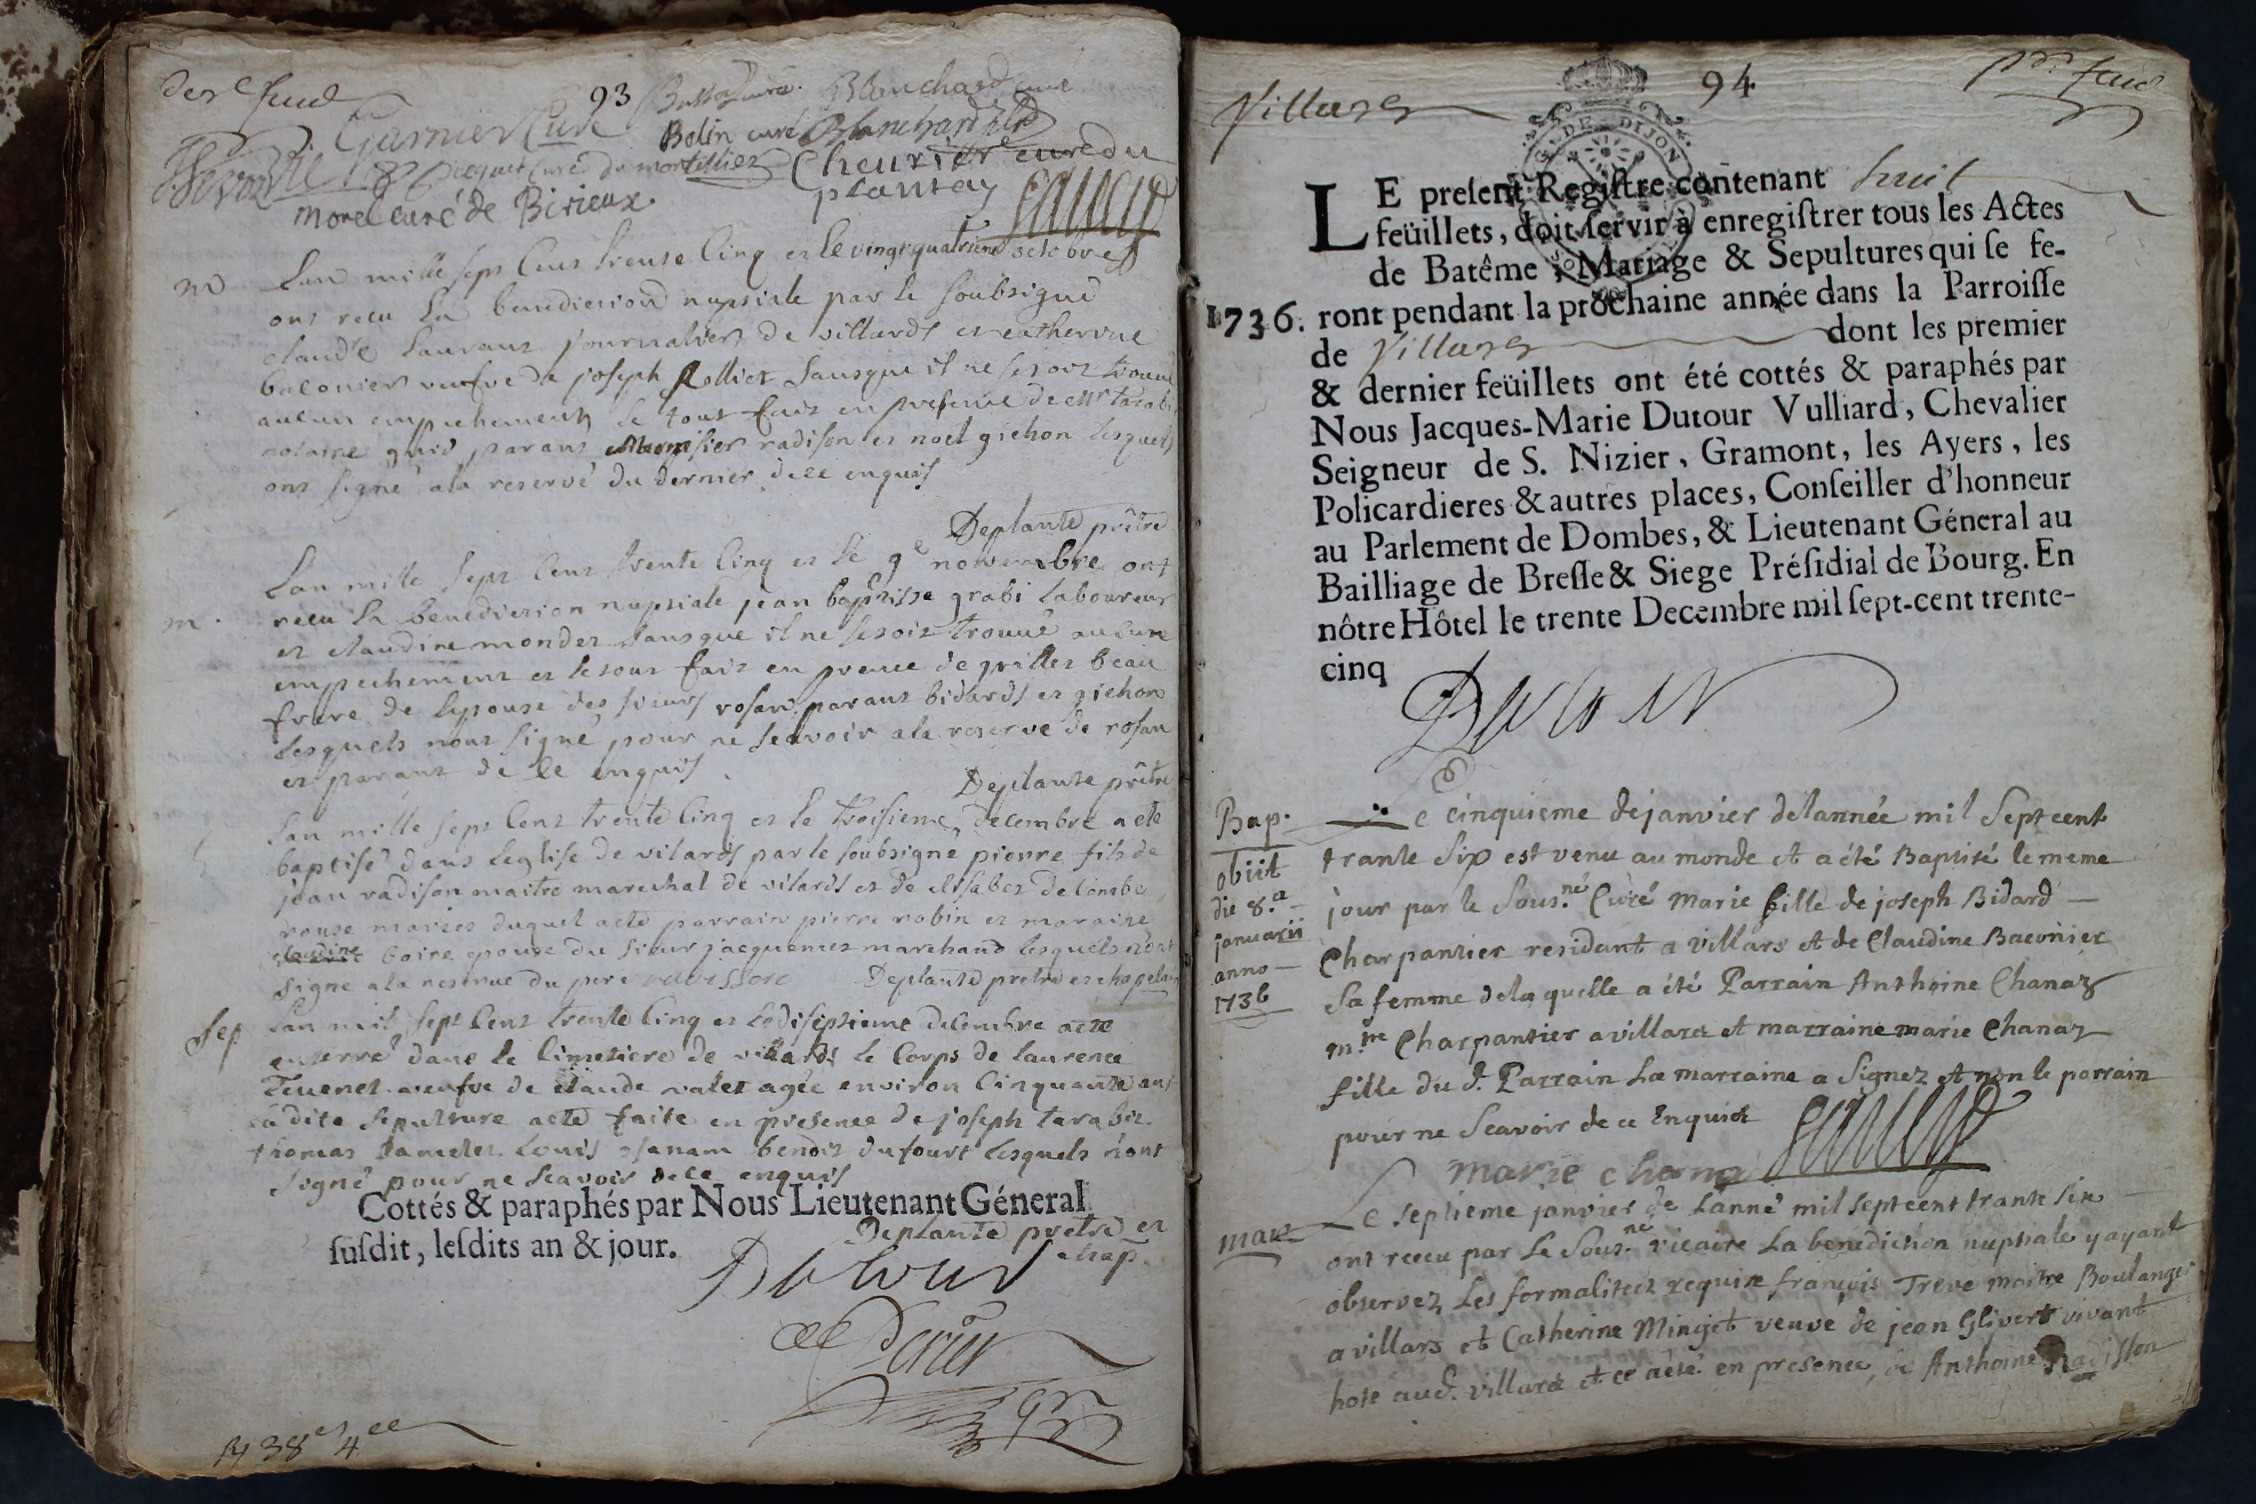 der.e feuil
93
Blanchard curé
Garnier Curé
Bolin curé Blanchard
Jicquet Curé de mortillier
Cheurier curé du
plantay
Morel curé de Birieux.
m
Lan mille sept Cens trente Cinq et le vingt quatrieme octobre
ont recu La benediction nupsiale par le soubsigné
claude Laurans journalier de villards et catherine
baconier veufve de joseph Rollier sansque il ne se soit trouve
aucun empechement le tout fait en presence de Mr tarabi
notaire parans radison et noel gichon lesquels
ont signé ala reserve du dernier de ce enquis
Deplante prêtre
m.
Lan mille sept Cens trente Cinq et le 9e novembre ont
recu la benediction nupsiale jean baptiste grabi Laboureur
et claudine mondes sans que il ne se soit trouvé aucune
empechement et le tout fait en presence de grilles beau
frere de lepouse des sieurs rosan parans bidards et gichon
Lesquels nont signé pour ne scavoir ala reserve de rosan
et parans de Ce enquis
Deplante prêtre
Lan mille sept Cens trente Cinq et le troisieme decembre a ete
baptisé dans Leglise de vilards par le soubsigné pierre fils de
jean radison maitre marechal de vilards et de elisabet de Combe
rouse maries duquel acte parrain pierre robin et maraine
claudine boire epouse du sieur jacquemes marchand lesquels nont
signe ala reserve du pere radisson Deplante pretre et chapelain
sep
Lan mil sept Cens trente Cinq et le diseptieme decembre a ete
enterré dans le Cimetiere de villards le Corps de laurence
Teuenet veufve de claude valet agée environ Cinquante ans
la dite sepulture acte faite en presence de joseph tarabit
thomas Lamelet Louis osanam benoit dufour Lesquels nont
signé pour ne scavoir de Ce enquis
Cottés & paraphés par Nous Lieutenant Géneral
susdit, lesdits an & jour.
Deplante pretre et
chap.
Dutour
Villars
94
pr. feuil
G. DE DIJON
LE present Registre contenant huit
feüillets, doit servir à enregistrer tous les Actes
de Batême, Mariage & Sepultures qui se fe-
1736. ront pendant la prochaine année dans la Parroisse
de Villars dont les premier
& dernier feüillets ont été cottés & paraphés par
Nous Jacques-Marie Dutour Vulliard, Chevalier
Seigneur de S. Nizier, Gramont, les Ayers, les
Policardieres & autres places, Conseiller d'honneur
au Parlement de Dombes, & Lieutenant Géneral au
Bailliage de Bresse & Siege Présidial de Bourg. En
nôtre Hôtel le trente Decembre mil sept-cent trente-
cinq
Dutour
Bap.
obiit
die 8.a
januarii
anno
1736
Le cinquieme de janvier delannée mil Sept cent
trante Six est venu au monde et a été Baptisé le meme
jour par le Sous.né Curé Marie fille de joseph Bidard
Charpantier residant a villars et de Claudine Baconier
Sa femme de la quelle a été Parrain Anthoine Chanaz
m.tre Charpantier a villars et marraine marie Chanaz
fille du d. Parrain La marraine a Signez et non le parrain
pour ne Scavoir de ce Enquist
marie chana
mar
Le septieme janvier de Lanné mil sept cent trante six
ont receu par Le Sous.né vicaire La benediction nuptiale y ayant
observez Les formaliteez requise françois Treve maitre Boulanger
a villars et Catherine Minget veuve de jean Glivert vivant
hote aud. villars et ce a été en presence de Anthoine Radisson